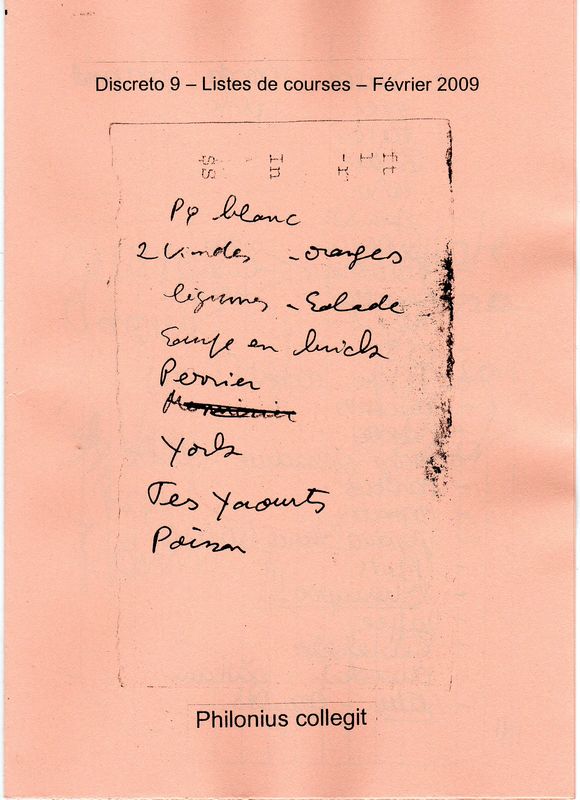 Discreto 9 – Listes de courses – Février 2009
PQ blanc
2 Viandes - oranges
légumes - Salade
Soupe en brick
Perrier
York
Tes Yaourts
Poisson
Philonius collegit